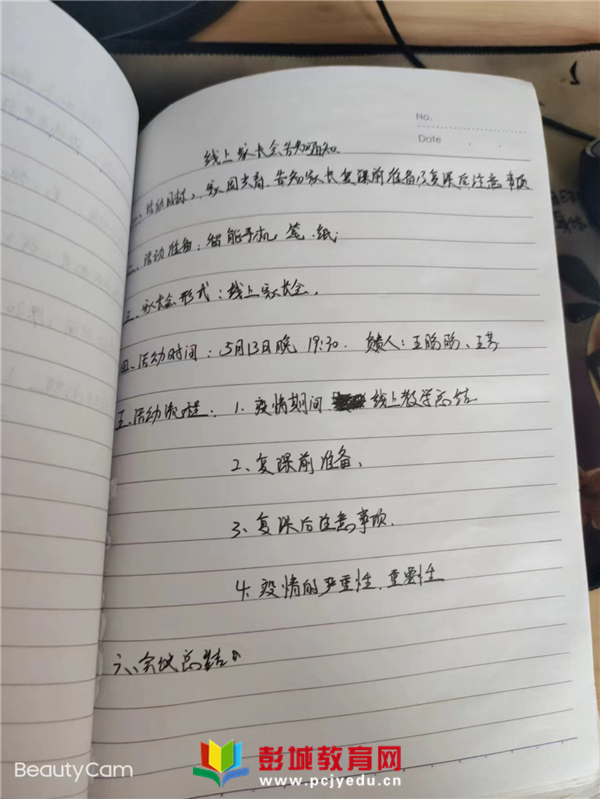 No.
Date
线上家长会告知通知
一、活动目标:家园共育.告知家长复课前准备以及复课后注意事项
二、活动准备:智能手机 笔.纸
三、家长会形式:线上家长会.
四、活动时间:5月13日晚 19:30. 人:王
五、活动流程:1.疫情期间 线上教学总结
2、复课前准备.
3、复课后注意事项.
4.疫情的严重性.重要性
六、会议总结。
BeautyCam
彭城教育网
www.pcjyedu.cn